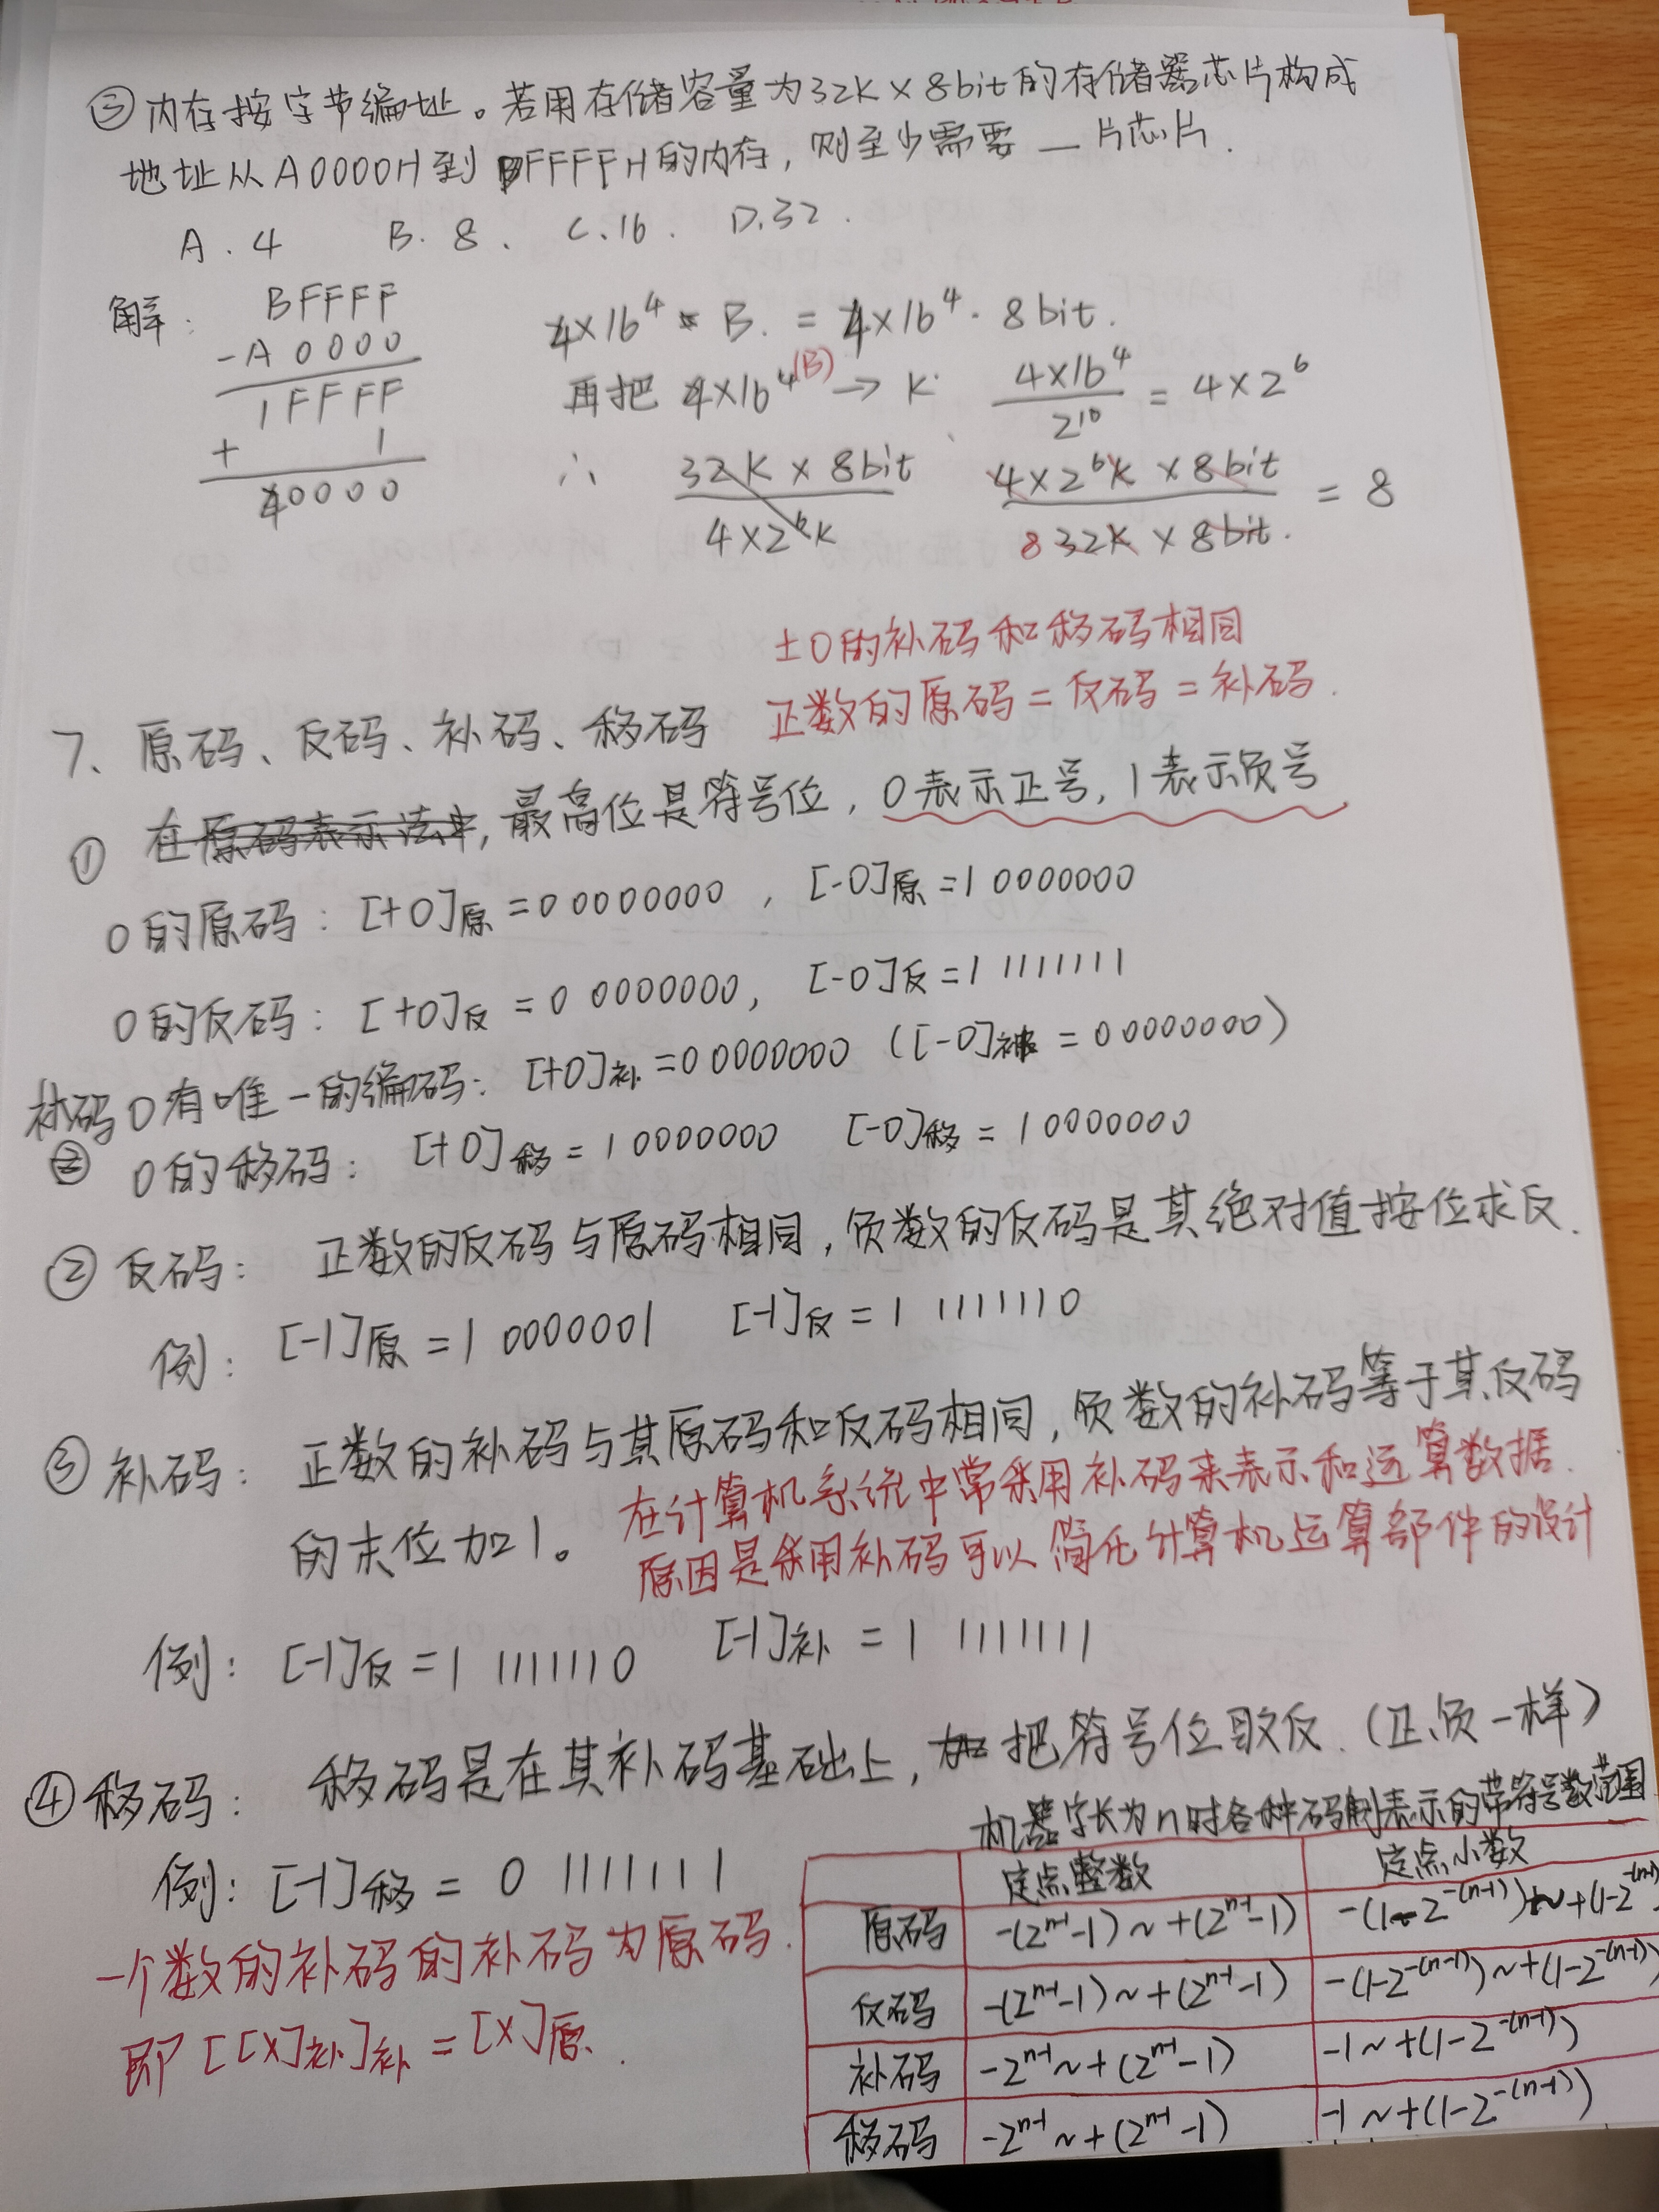 ③内存按字节编址。若用存储容量为32K×8bit的存储器芯片构成
地址从A0000H到BFFFFH的内存，则至少需要__片芯片.
A.4 B.8. C.16. D.32.
解:
BFFFF
-A0000
1FFFF
+ 1
40000
4×16⁴ B. = 4×16⁴·8bit.
再把4×16⁴(B)→K. 4×16⁴/2¹⁰ = 4×2⁶
∴ 32K×8bit/4×2⁶K 4×2⁶K×8bit/8 32K×8bit. = 8
±0的补码和移码相同
正数的原码=反码=补码.
7、原码、反码、补码、移码
① 在原码表示法中,最高位是符号位，0表示正号,1表示负号
0的原码: [+0]原=0 0000000 , [-0]原=1 0000000
0的反码: [+0]反=0 0000000, [-0]反=1 1111111
补码0有唯一的编码: [+0]补=0 0000000 ([-0]补=0 0000000)
② 0的移码: [+0]移=1 0000000 [-0]移=1 0000000
② 反码: 正数的反码与原码相同,负数的反码是其绝对值按位求反.
例: [-1]原=1 0000001 [-1]反=1 1111110
③ 补码: 正数的补码与其原码和反码相同,负数的补码等于其反码
的末位加1。
在计算机系统中常采用补码来表示和运算数据.
原因是采用补码可以简化计算机运算部件的设计
例: [-1]反=1 1111110 [-1]补=1 1111111
④移码: 移码是在其补码基础上,把符号位取反.(正负一样)
例: [-1]移=0 1111111
一个数的补码的补码为原码.
即[[X]补]补=[X]原.
机器字长为n时各种码制表示的带符号数范围
定点整数 定点小数
原码 -(2ⁿ⁻¹-1)~+(2ⁿ⁻¹-1) -(1-2⁻⁽ⁿ⁻¹⁾)~+(1-2⁻⁽ⁿ⁻¹⁾
反码 -(2ⁿ⁻¹-1)~+(2ⁿ⁻¹-1) -(1-2⁻⁽ⁿ⁻¹⁾)~+(1-2⁻⁽ⁿ⁻¹⁾)
补码 -2ⁿ⁻¹~+(2ⁿ⁻¹-1) -1~+(1-2⁻⁽ⁿ⁻¹⁾)
移码 -2ⁿ⁻¹~+(2ⁿ⁻¹-1) -1~+(1-2⁻⁽ⁿ⁻¹⁾)